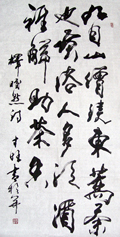 九日山僧院東籬菊
也黄俗人多泛酒
誰解助茶香
釋皎然詩